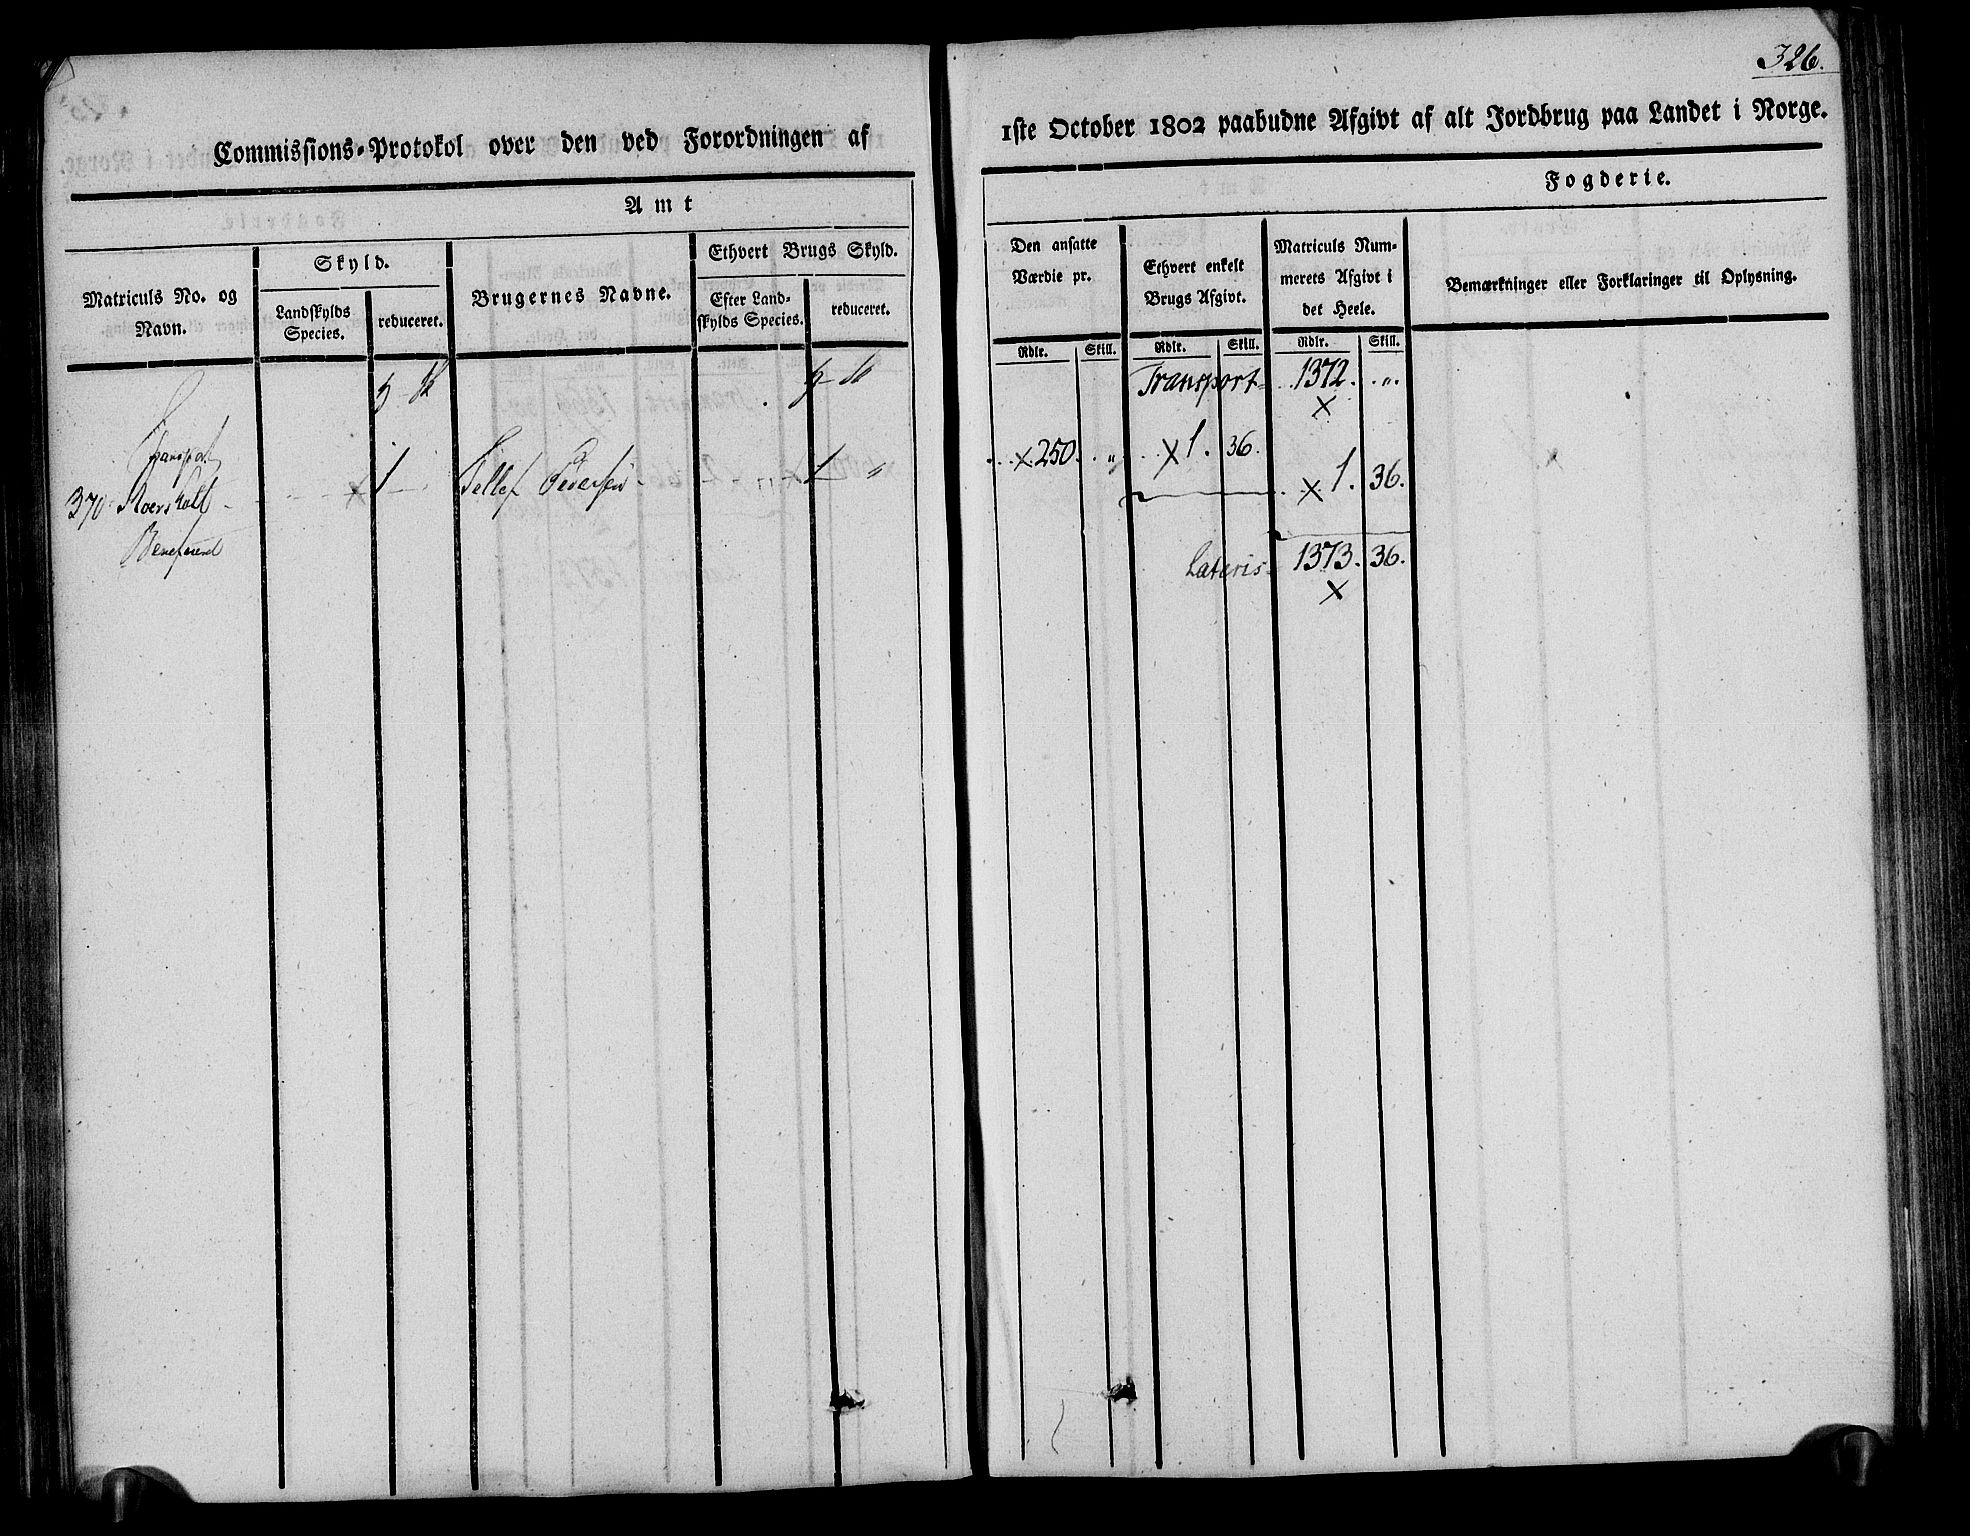 326.
Commissions-Protokol over den ved Forordningen af
1ste October 1802 paabudne Afgivt af alt Jordbrug paa Landet i Norge.
Amt
Fogderie.
Matriculs No. og
Navn.
Skyld.
Landskylds
Species.
reduceret.
Brugernes Navne.
Ethvert Brugs Skyld.
Efter Land-
skylds Species.
reduceret.
Den ansatte
Værdie pr.
Rdlr. Skill.
Ethvert enkelt
Brugs Afgivt.
Rdlr. Skill.
Matriculs Num-
merets Afgivt i
det Heele.
Rdlr. Skill.
Bemærkninger eller Forklaringer til Oplysning.
Transport 1372. „.
X
Transport
370 X 1 Tellef Pedersen 1 „ X 250. „ X 1. 36.
X 1. 36.
Lateris 1373. 36.
X